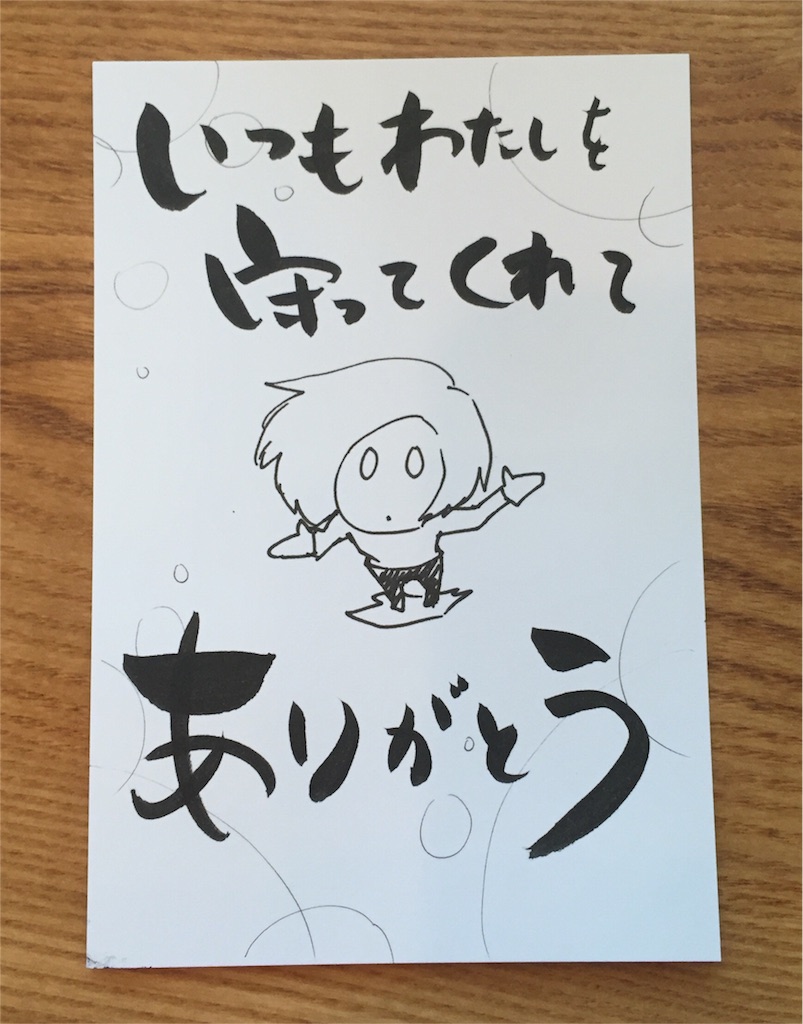 いつもわたしを
守ってくれて
ありがとう